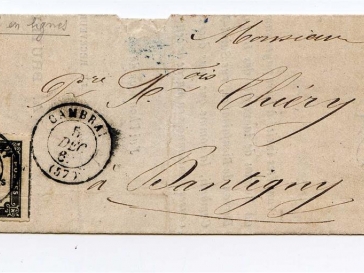 en lignes
Monsieur
Pre Fois Thiéry
CAMBRAI
5
DEC
(57)
à Bantigny